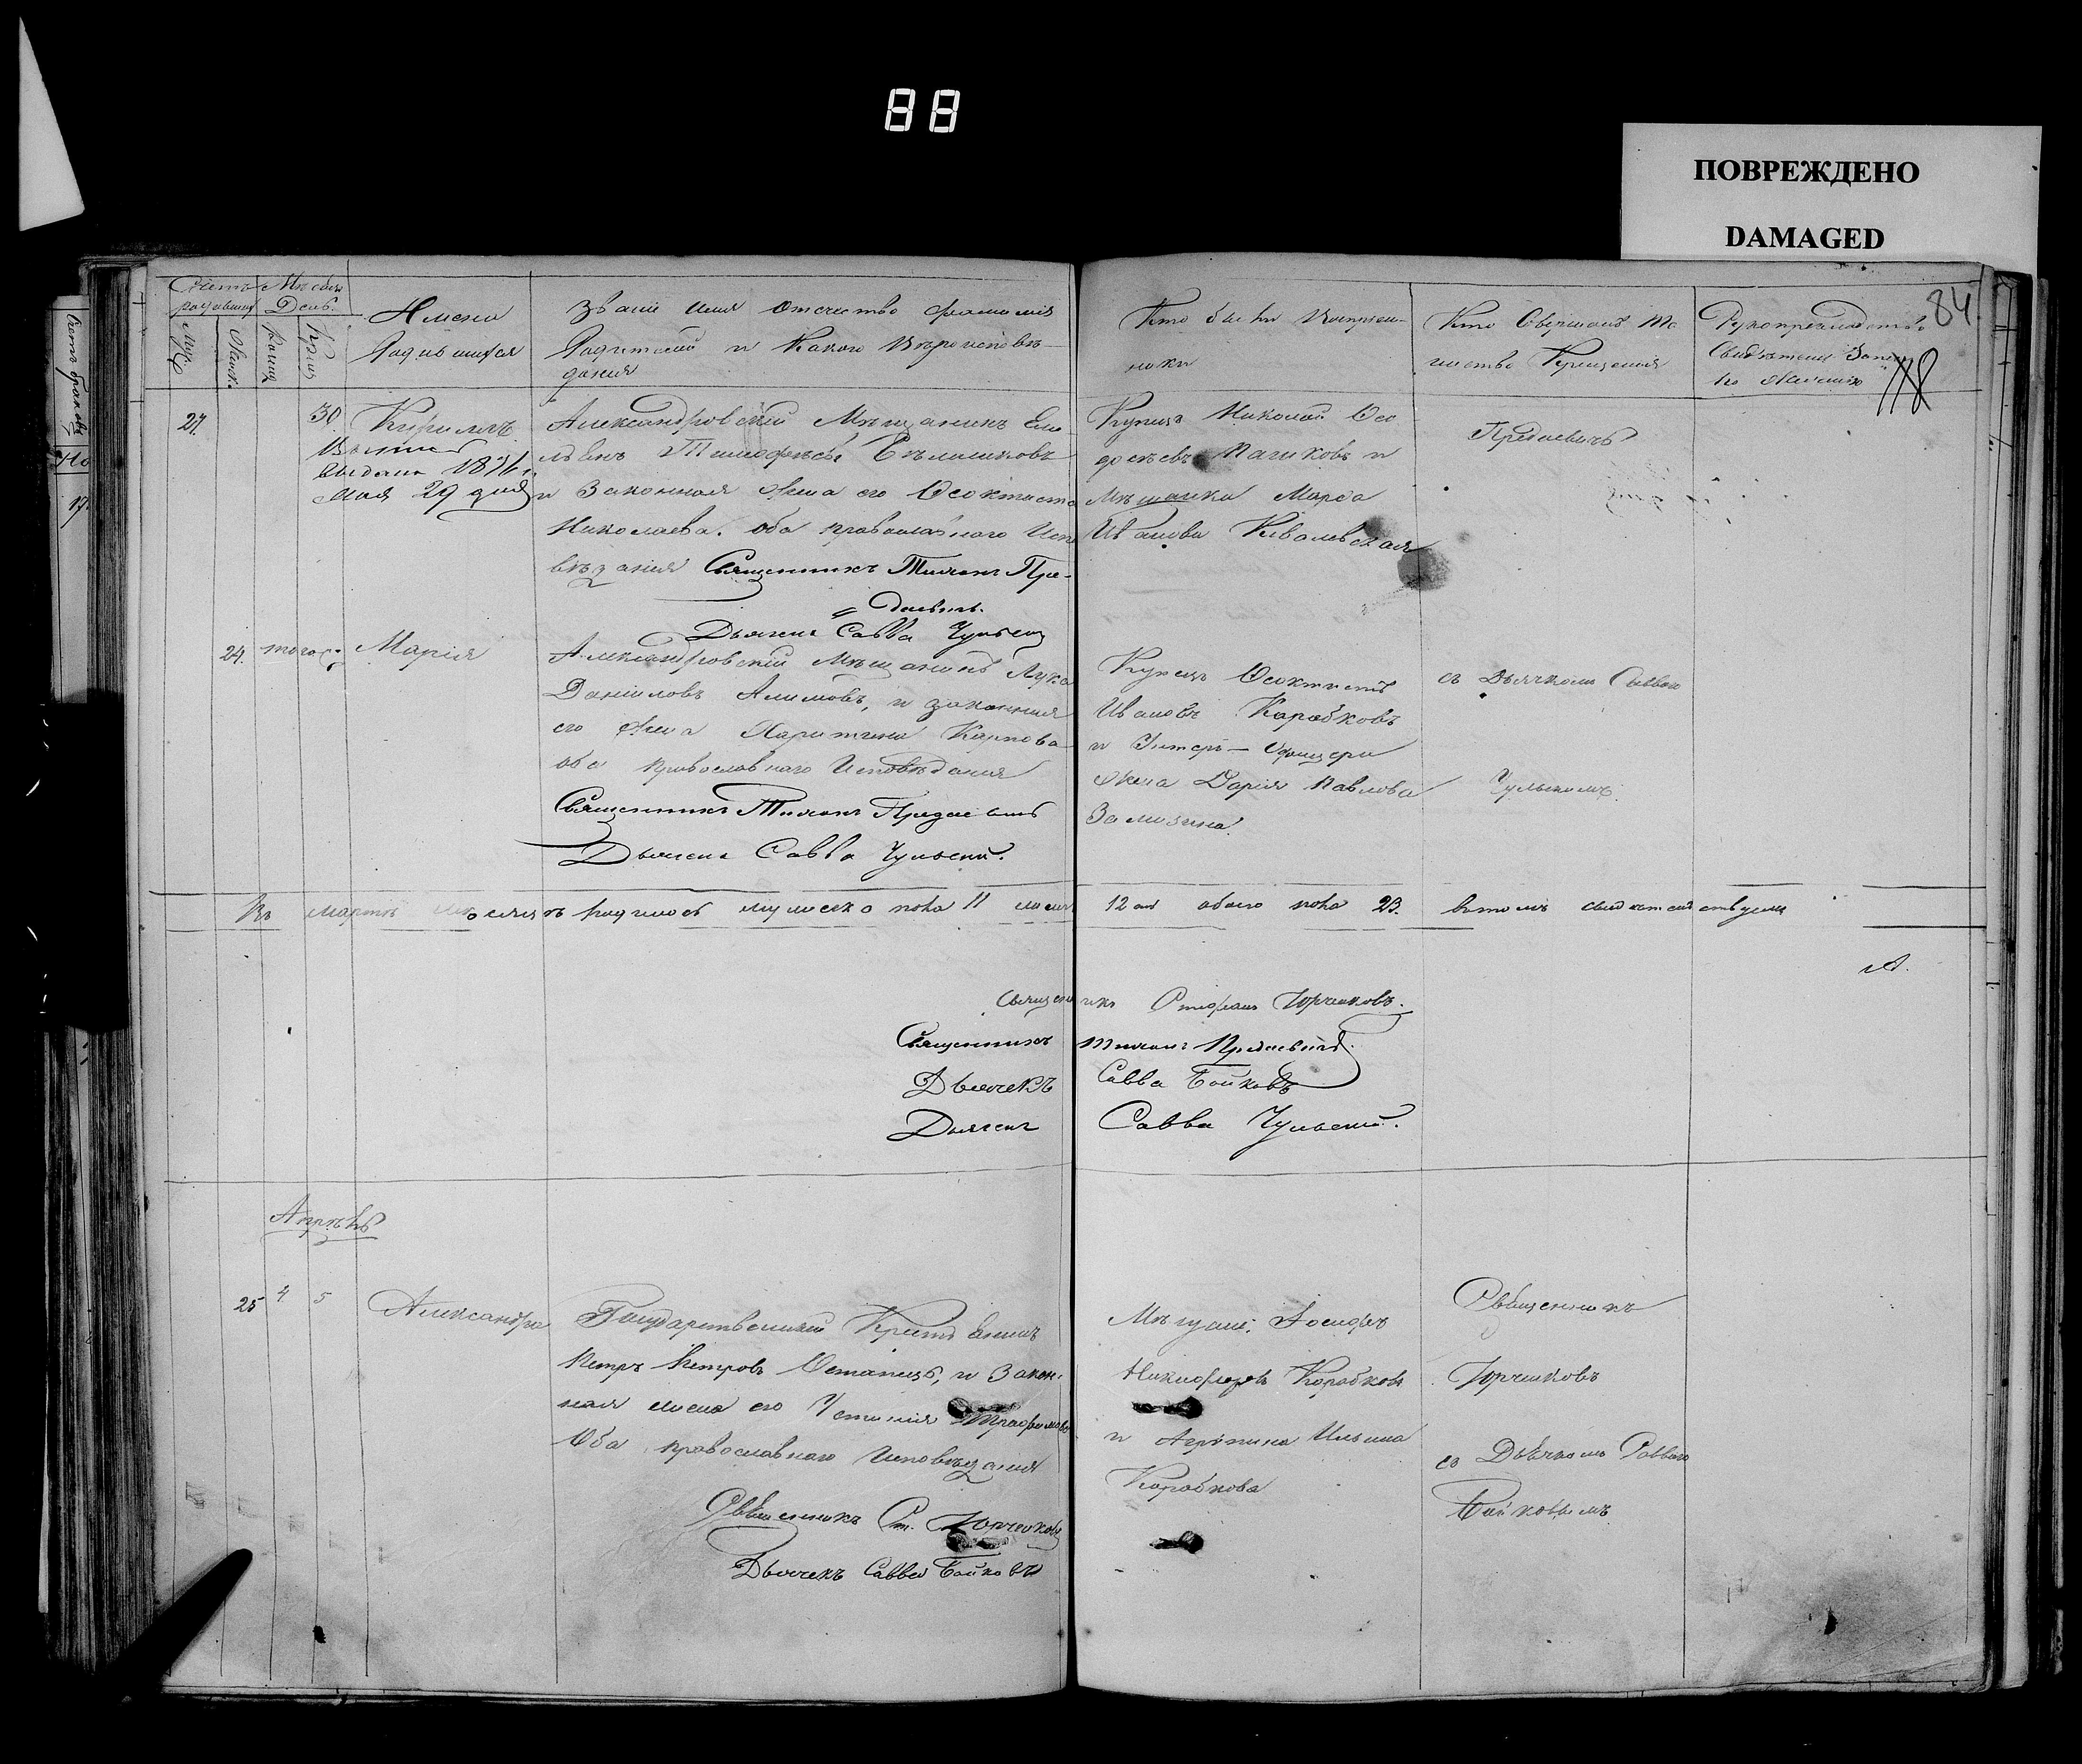 88
ПОВРЕЖДЕНО
DAMAGED
84
118
Счетъ
Мѣсяцъ
День
Муж.
Женск.
Имена
Родившихся
Званіе имя отечество фамилія
Родителей и какого вѣроисповѣ-
данія
Кто были воспріем-
ники
Кто совершалъ та
инство крещенія
Рукоприкладство
по желанію
27.
30
Кириллъ
выдана 1876
мая 29 дня
Александровскій мѣщанинъ
Тимофѣевъ
и законная жена его Ѳеоктиста
Николаева. оба православнаго испо
вѣданія Священникъ Тихонъ Пре-
даевичъ.
Дьячекъ Савва Чульскій
Купецъ Николай Ѳео
и
Мѣщанка Марфа
Иванова Ковалевская
Предаевичъ
24. того
Марія
Александровскій мѣщанинъ Лука
Даніиловъ Алимовъ, и законная
его жена Харитина Карпова
оба православнаго исповѣданія
Священникъ Тихонъ Предаевичъ
Дьячекъ Савва Чульскій.
Купецъ Ѳеоктистъ
Ивановъ Коробковъ
и Унтеръ-офицера
жена Дарія Павлова
съ Дьячкомъ Саввою
Чульскимъ.
въ мартѣ мѣсяцѣ родилось мужеска пола 11 женск 12 обоего пола 23. въ томъ свидѣтельствуемъ
Священникъ Стефанъ Юрченковъ.
Священникъ Тихонъ Предаевичъ.
Дьячекъ Савва Бойковъ
Дьячекъ Савва Чульскій.
Апрѣль
25 4 5
Александра
Государственный Крестьянинъ
Петръ Петровъ Остапецъ, и закон-
ная жена его Устинія Трофимова
Оба православнаго исповѣданія
Священникъ Ст. Юрченковъ
Дьячекъ Савва Бойковъ
Мѣщане: Іосифъ
Никифоровъ Коробковъ
и Агрипина Ильина
Коробкова
Священникъ
Юрченковъ
съ Дьячкомъ Саввою
Бойковымъ